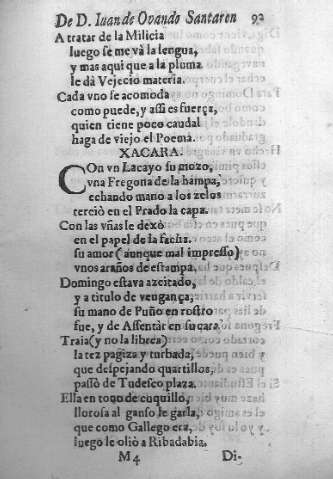 De D. Iuan de Ovando Santaren 92
A tratar de la Milicia
luego se me và la lengua,
y mas aqui que a la pluma
le dà Vejecio materia.
Cada vno se acomoda
como puede, y assi es fuerça,
quien tiene poco caudal
haga de viejo el Poema.
XACARA.
COn vn Lacayo su mozo,
vna Fregona de la hampa,
echando mano a los zelos
terciò en el Prado la capa.
Con las vñas le dexò
en el papel de la facha.
su amor (aunque mal impresso)
vnos araños de estampa.
Domingo estava azeitado,
y a titulo de vengança,
su mano de Puño en rostro
fue, y de Assentàr en su cara.
Traia (y no la librea)
la tez pagiza y turbada,
que despejando quartillos,
passò de Tudesco plaza.
Ella en tono de cuquillo,
llorosa al ganso le garla,
que como Gallego era,
luego le oliò a Ribadabia.
M4 Di-